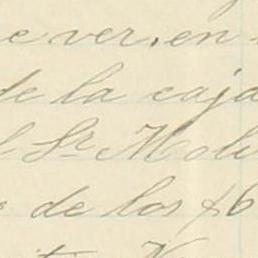 e ver, en
de la caja
l Sr Moli
de los $6